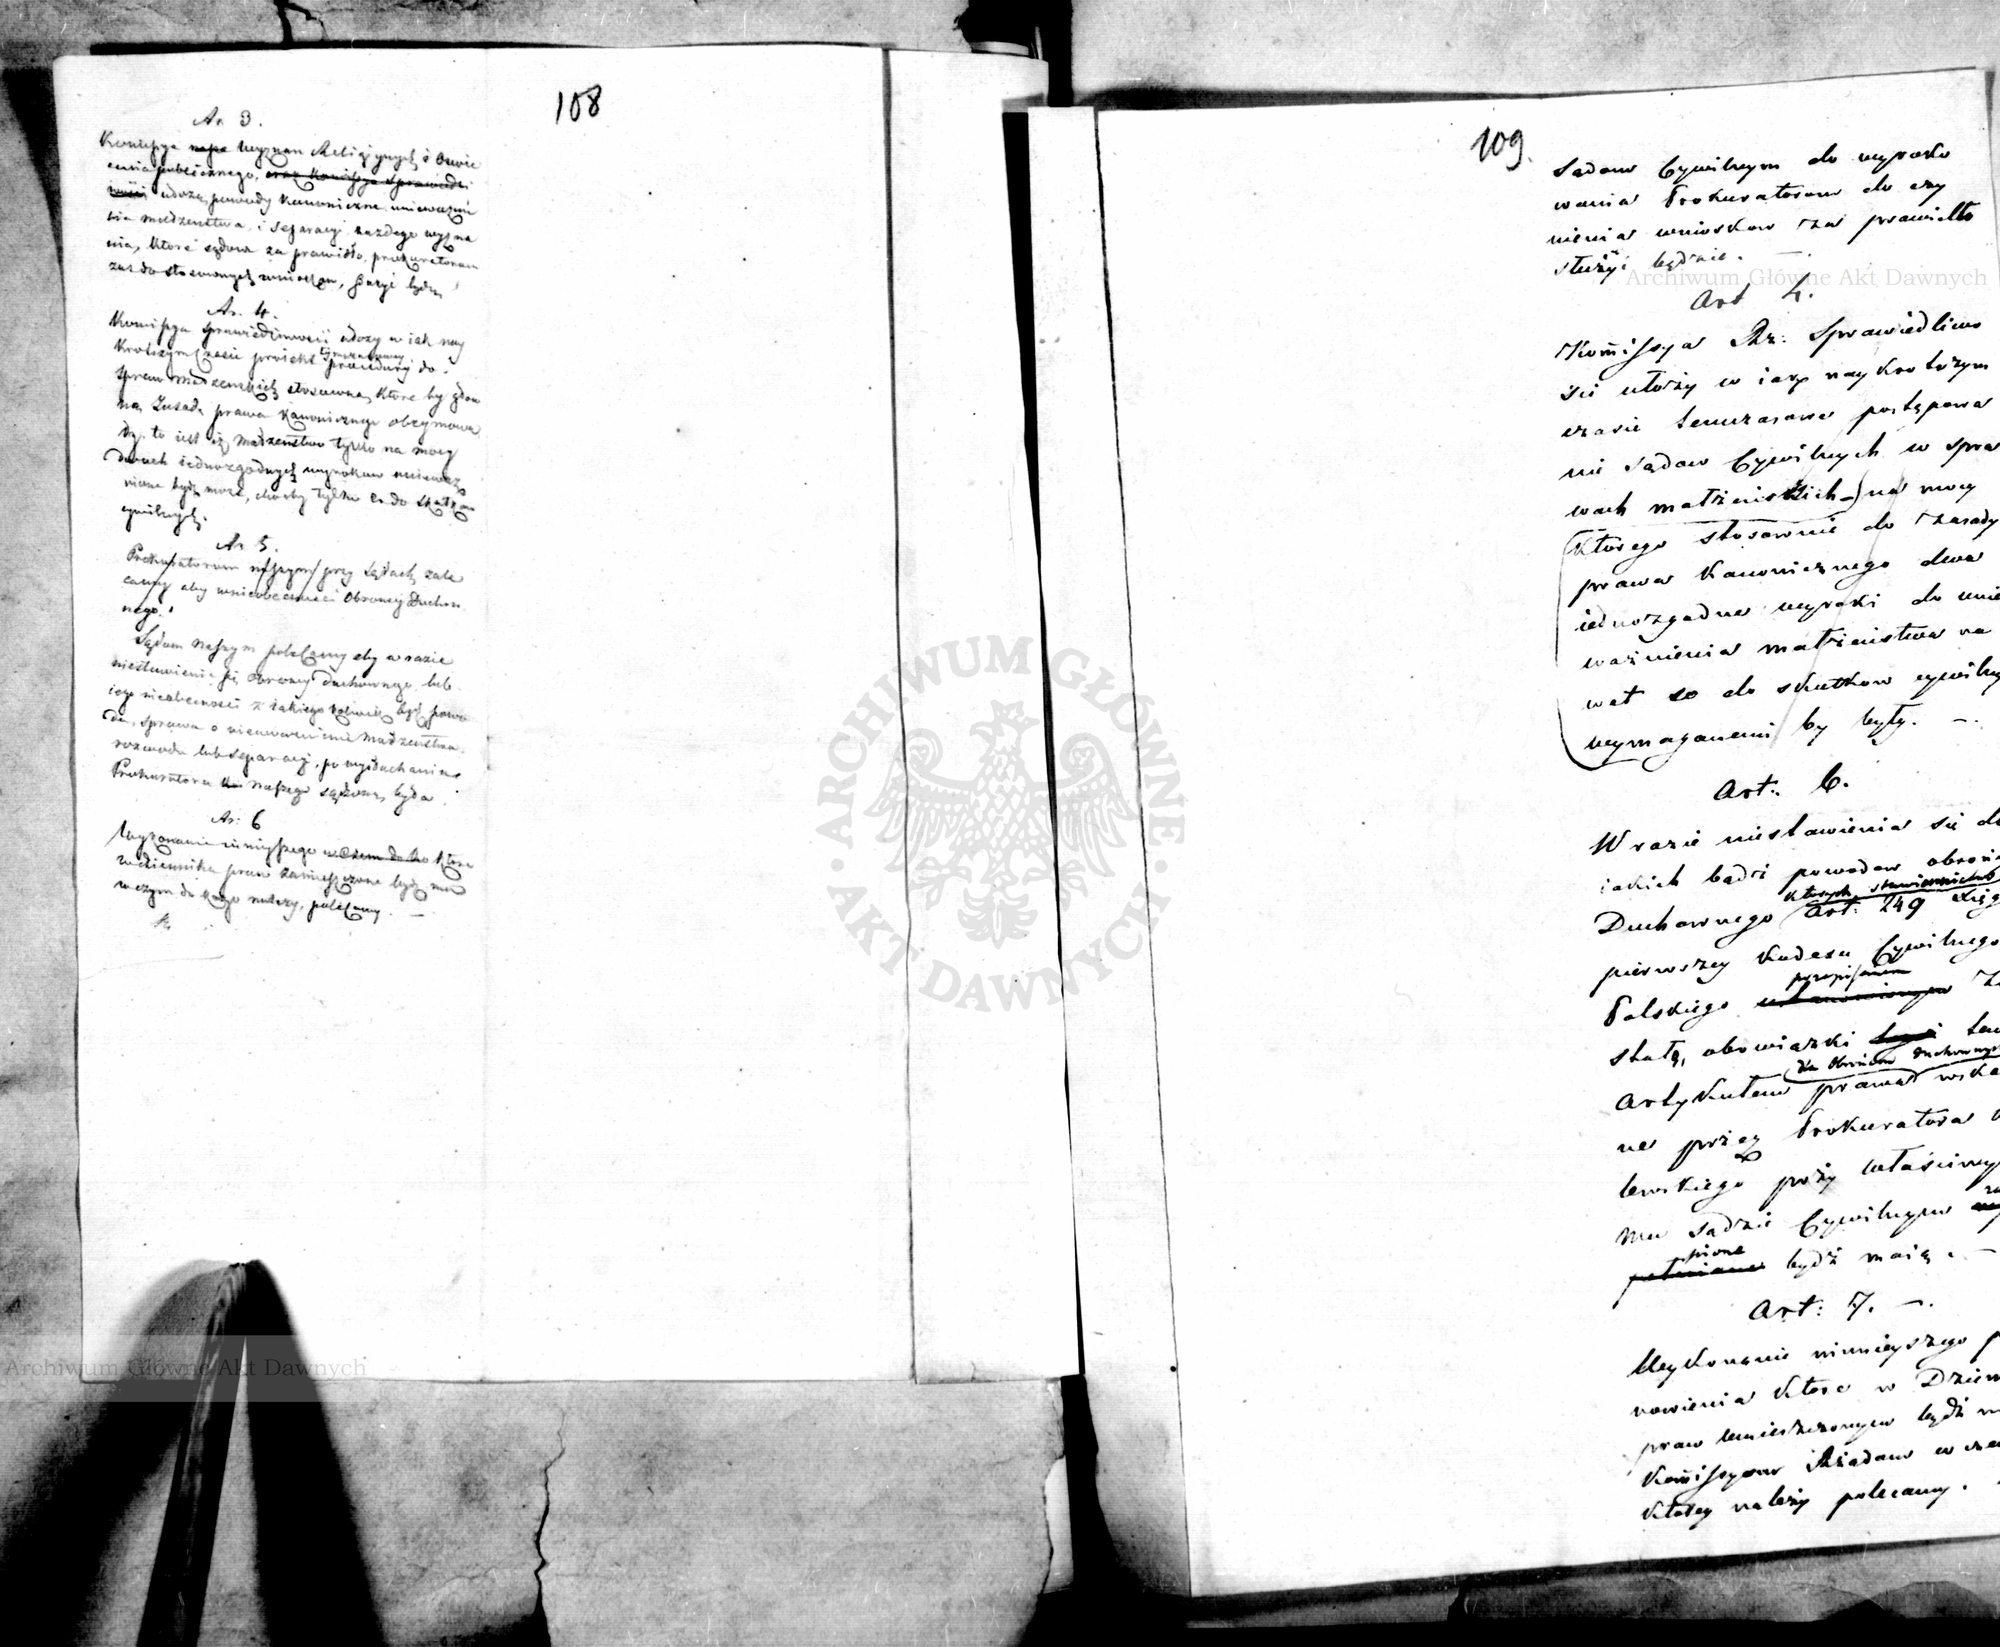 108
Ar. 3.
Komissya Wyznań Religijnych i Oświe
cenia publicznego, oraz Komissya Sprawiedli
wości ułożą powody kanoniczne unieważnie
nia małżeństwa i separacyi każdego wyzna
nia, które sądom za prawidło, prokuratorom
zaś do stosownych wniosków, służyć będą
Ar. 4.
Komissya Sprawiedliwości ułoży w iak nay
krotszym czasie proiekt tymczasowey procedury do
spraw małżeńskich stosowną, które by głów
ną zasadę prawa kanonicznego obeymowa
ły, to iest iż małżeństwo tylko na mocy
dwoch iednozgodnych wyrokow unieważ
nione być może, choćby tylko co do skutkow
cywilnych.
Ar. 5.
Prokuratorom naszym przy Sądach zale
camy aby w nieobecności Obrońcy Duchow
nego.
Sądom Naszym polecamy aby w razie
niestawienia się obrońcy Duchownego lub
iego nieobecności z iakiego kolwiek bądź powo
du, sprawa o unieważnienie małżeństwa
rozwodu lub separacyi, po wysłuchaniu
Prokuratora Naszego sądzoną była.
Ar: 6
Wykonanie ninieyszego które
w dzienniku praw zamieszczone być ma
w czym do kogo należy, polecamy. —
109.
Sądom Cywilnym do wyroko
wania Prokuratorom do czy
nienia wniosków za prawidło
służyć będzie. —
Art 4.
Kommissya Rz: Sprawiedliwo
ści ułoży w iak naykrotszym
czasie temczasowe postępowa
nie sądow Cywilnych w spra
wach małżeńskich na mocy
ktorego stosownie do zasady
prawa Kanonicznego dwa
iednozgodne wyroki do unie
ważnienia małżeństwa na
wet co do skutkow cywilny
wymaganemi by były. —
Art: 6.
W razie niestawienia się dla
iakich bądź powodow obrońc
Duchownego ktorych stawiennictwo art: 249 Xięg
pierwszey Kodexu Cywilnego
Polskiego przepisanem
stało, obowiązki tem
Artykułem prawa dla obrońcow duchownych wska
ne przez Prokuratora K
lewskiego przy właściwy
m sądzie Cywilnym
pione bydź maią. —
Art: 7. —
Wykonanie ninieyszego p
nowienia ktore w Dzien
praw umieszczonym bydź m
Kommissyom Rządow w cze
ktorey należy polecamy.
Archiwum Główne Akt Dawnych
Archiwum Główne Akt Dawnych
ARCHIWUM GŁÓWNE
AKT DAWNYCH